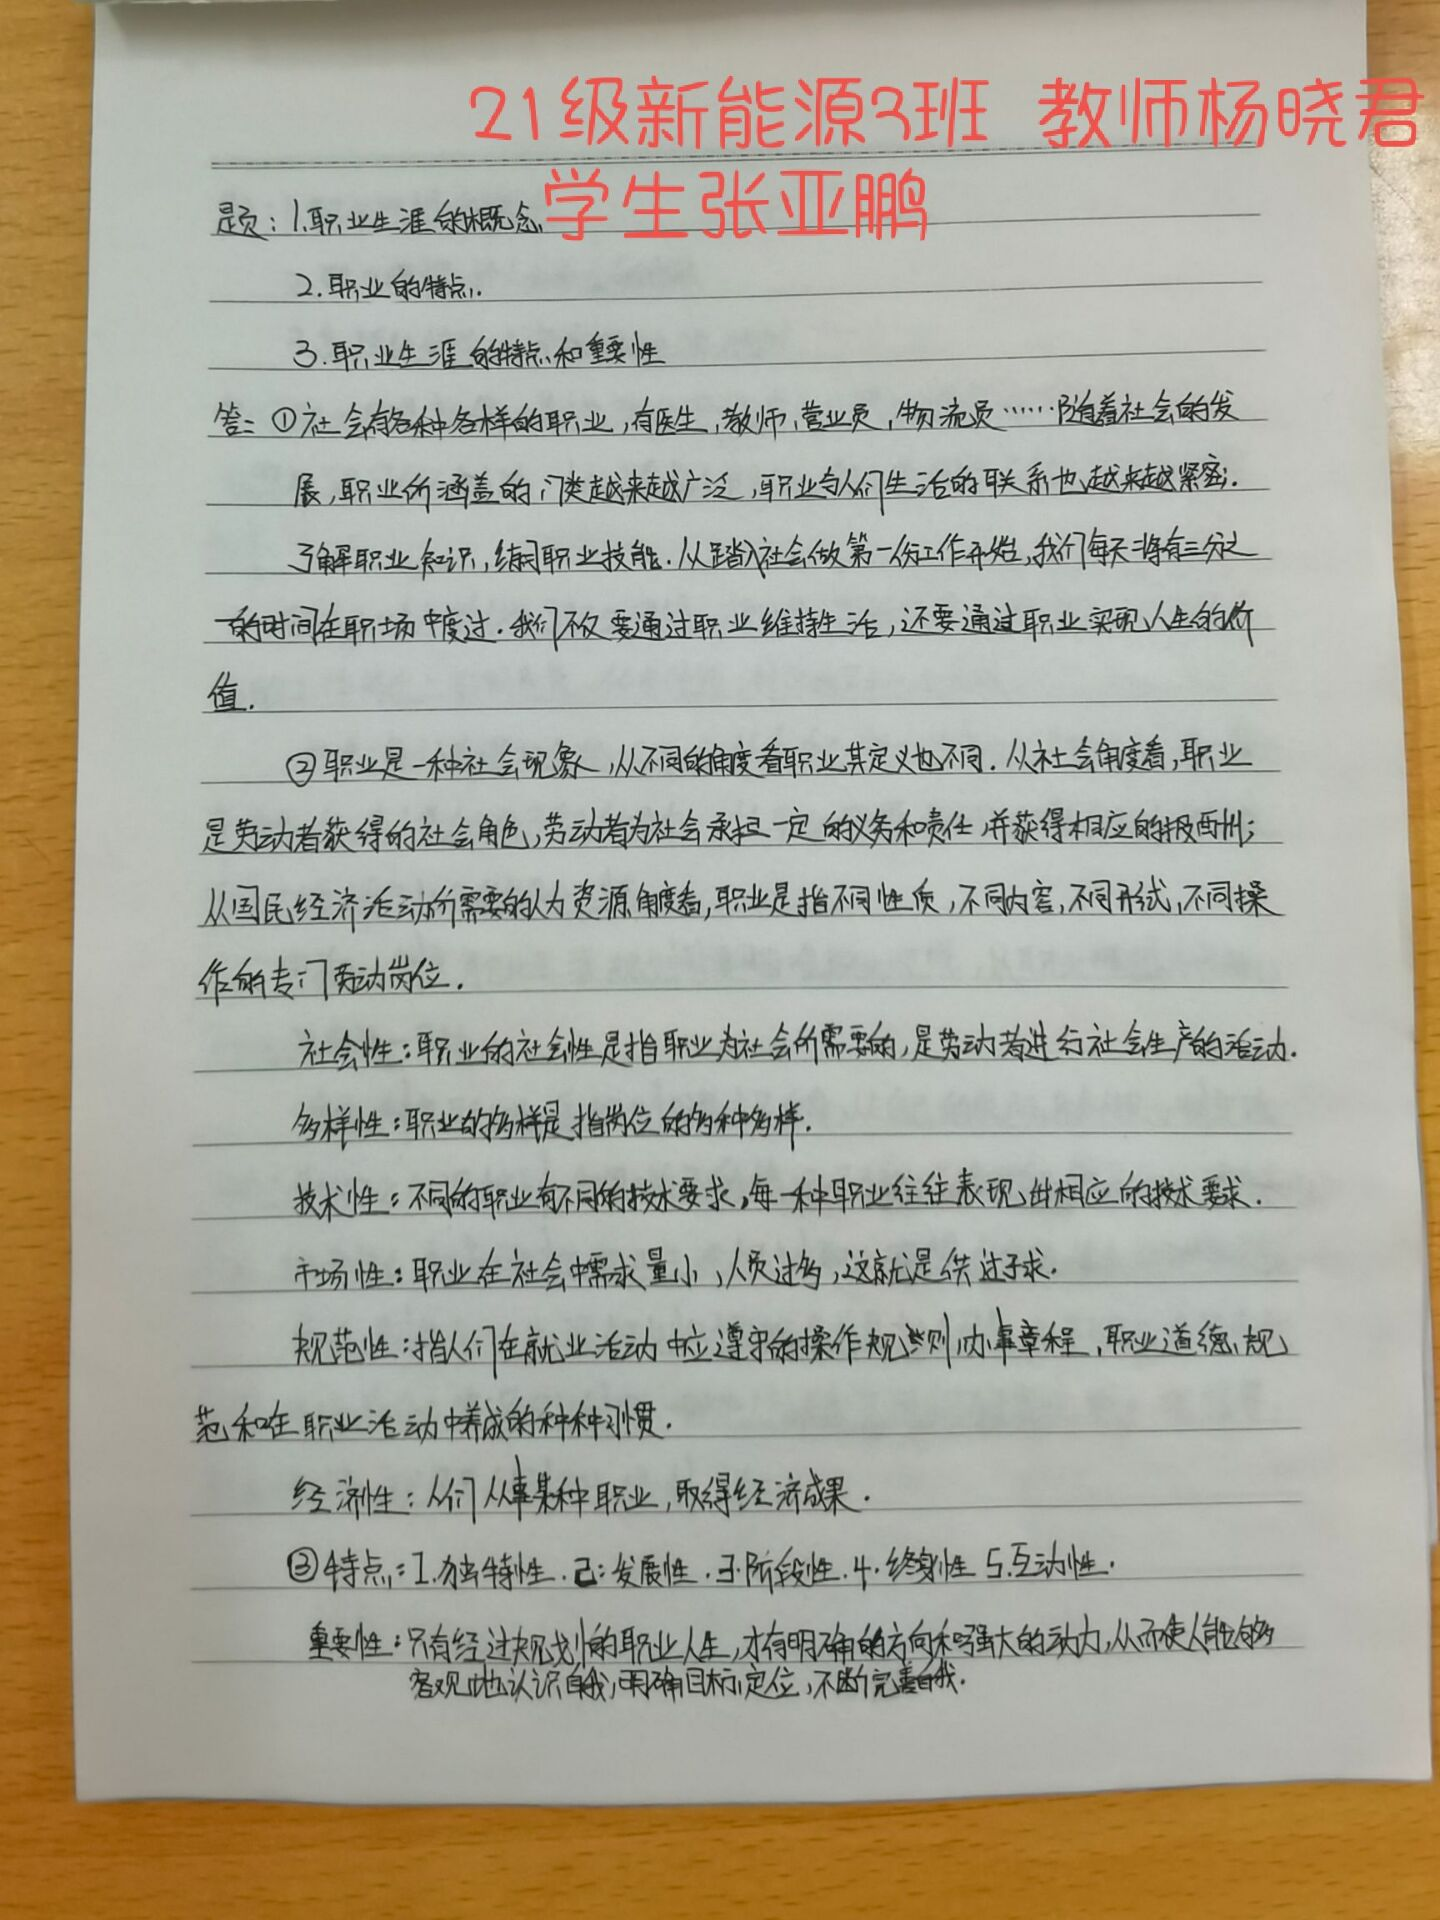 21级新能源3班 教师杨晓君
学生张亚鹏
题：1.职业生涯的概念
2.职业的特点.
3.职业生涯的特点和重要性
答：①社会有各种各样的职业，有医生，教师，营业员，物流员……随着社会的发
展，职业所涵盖的门类越来越广泛，职业与人们生活的联系也越来越紧密.
了解职业知识，练习职业技能.从踏入社会做第一份工作开始，我们每天将有三分之
一的时间在职场中度过.我们不仅要通过职业维持生活，还要通过职业实现人生的价
值.
②职业是一种社会现象，从不同的角度看职业其定义也不同.从社会角度看，职业
是劳动者获得的社会角色，劳动者为社会承担一定的义务和责任，并获得相应的报酬；
从国民经济活动所需要的人力资源角度看，职业是指不同性质，不同内容，不同形式，不同操
作的专门劳动岗位.
社会性：职业的社会性是指职业为社会所需要的，是劳动者进行社会生产的活动.
多样性：职业的多样是指岗位的多种多样.
技术性：不同的职业有不同的技术要求，每一种职业往往表现出相应的技术要求.
市场性：职业在社会中需求量小，人员过多，这就是供过于求.
规范性：指人们在就业活动中应遵守的操作规则，办事章程，职业道德规
范和在职业活动中养成的种种习惯.
经济性：人们从事某种职业，取得经济成果.
③特点：1.独特性.2：发展性.3.阶段性.4.终身性5.互动性.
重要性：只有经过规划的职业人生，才有明确的方向和强大的动力，从而使人能够
客观地认识自我，明确目标定位，不断完善自我.